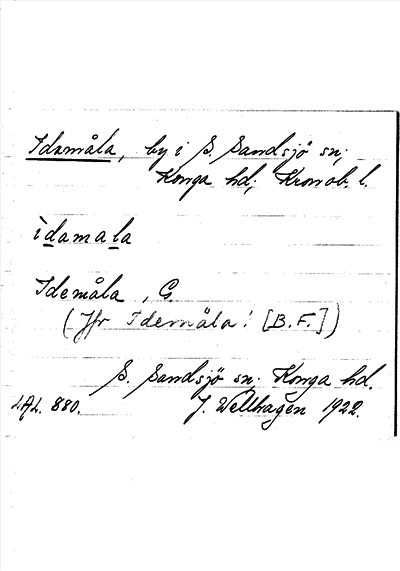 Idamåla, by i S. Sandsjö sn;
Konga hd; Kronob. l.
ìdamala
Idemåla, G.
(Jfr Idemåla! [B.F.])
S. Sandsjö sn. Konga hd.
LAL. 880. J. Wellhagen 1922.